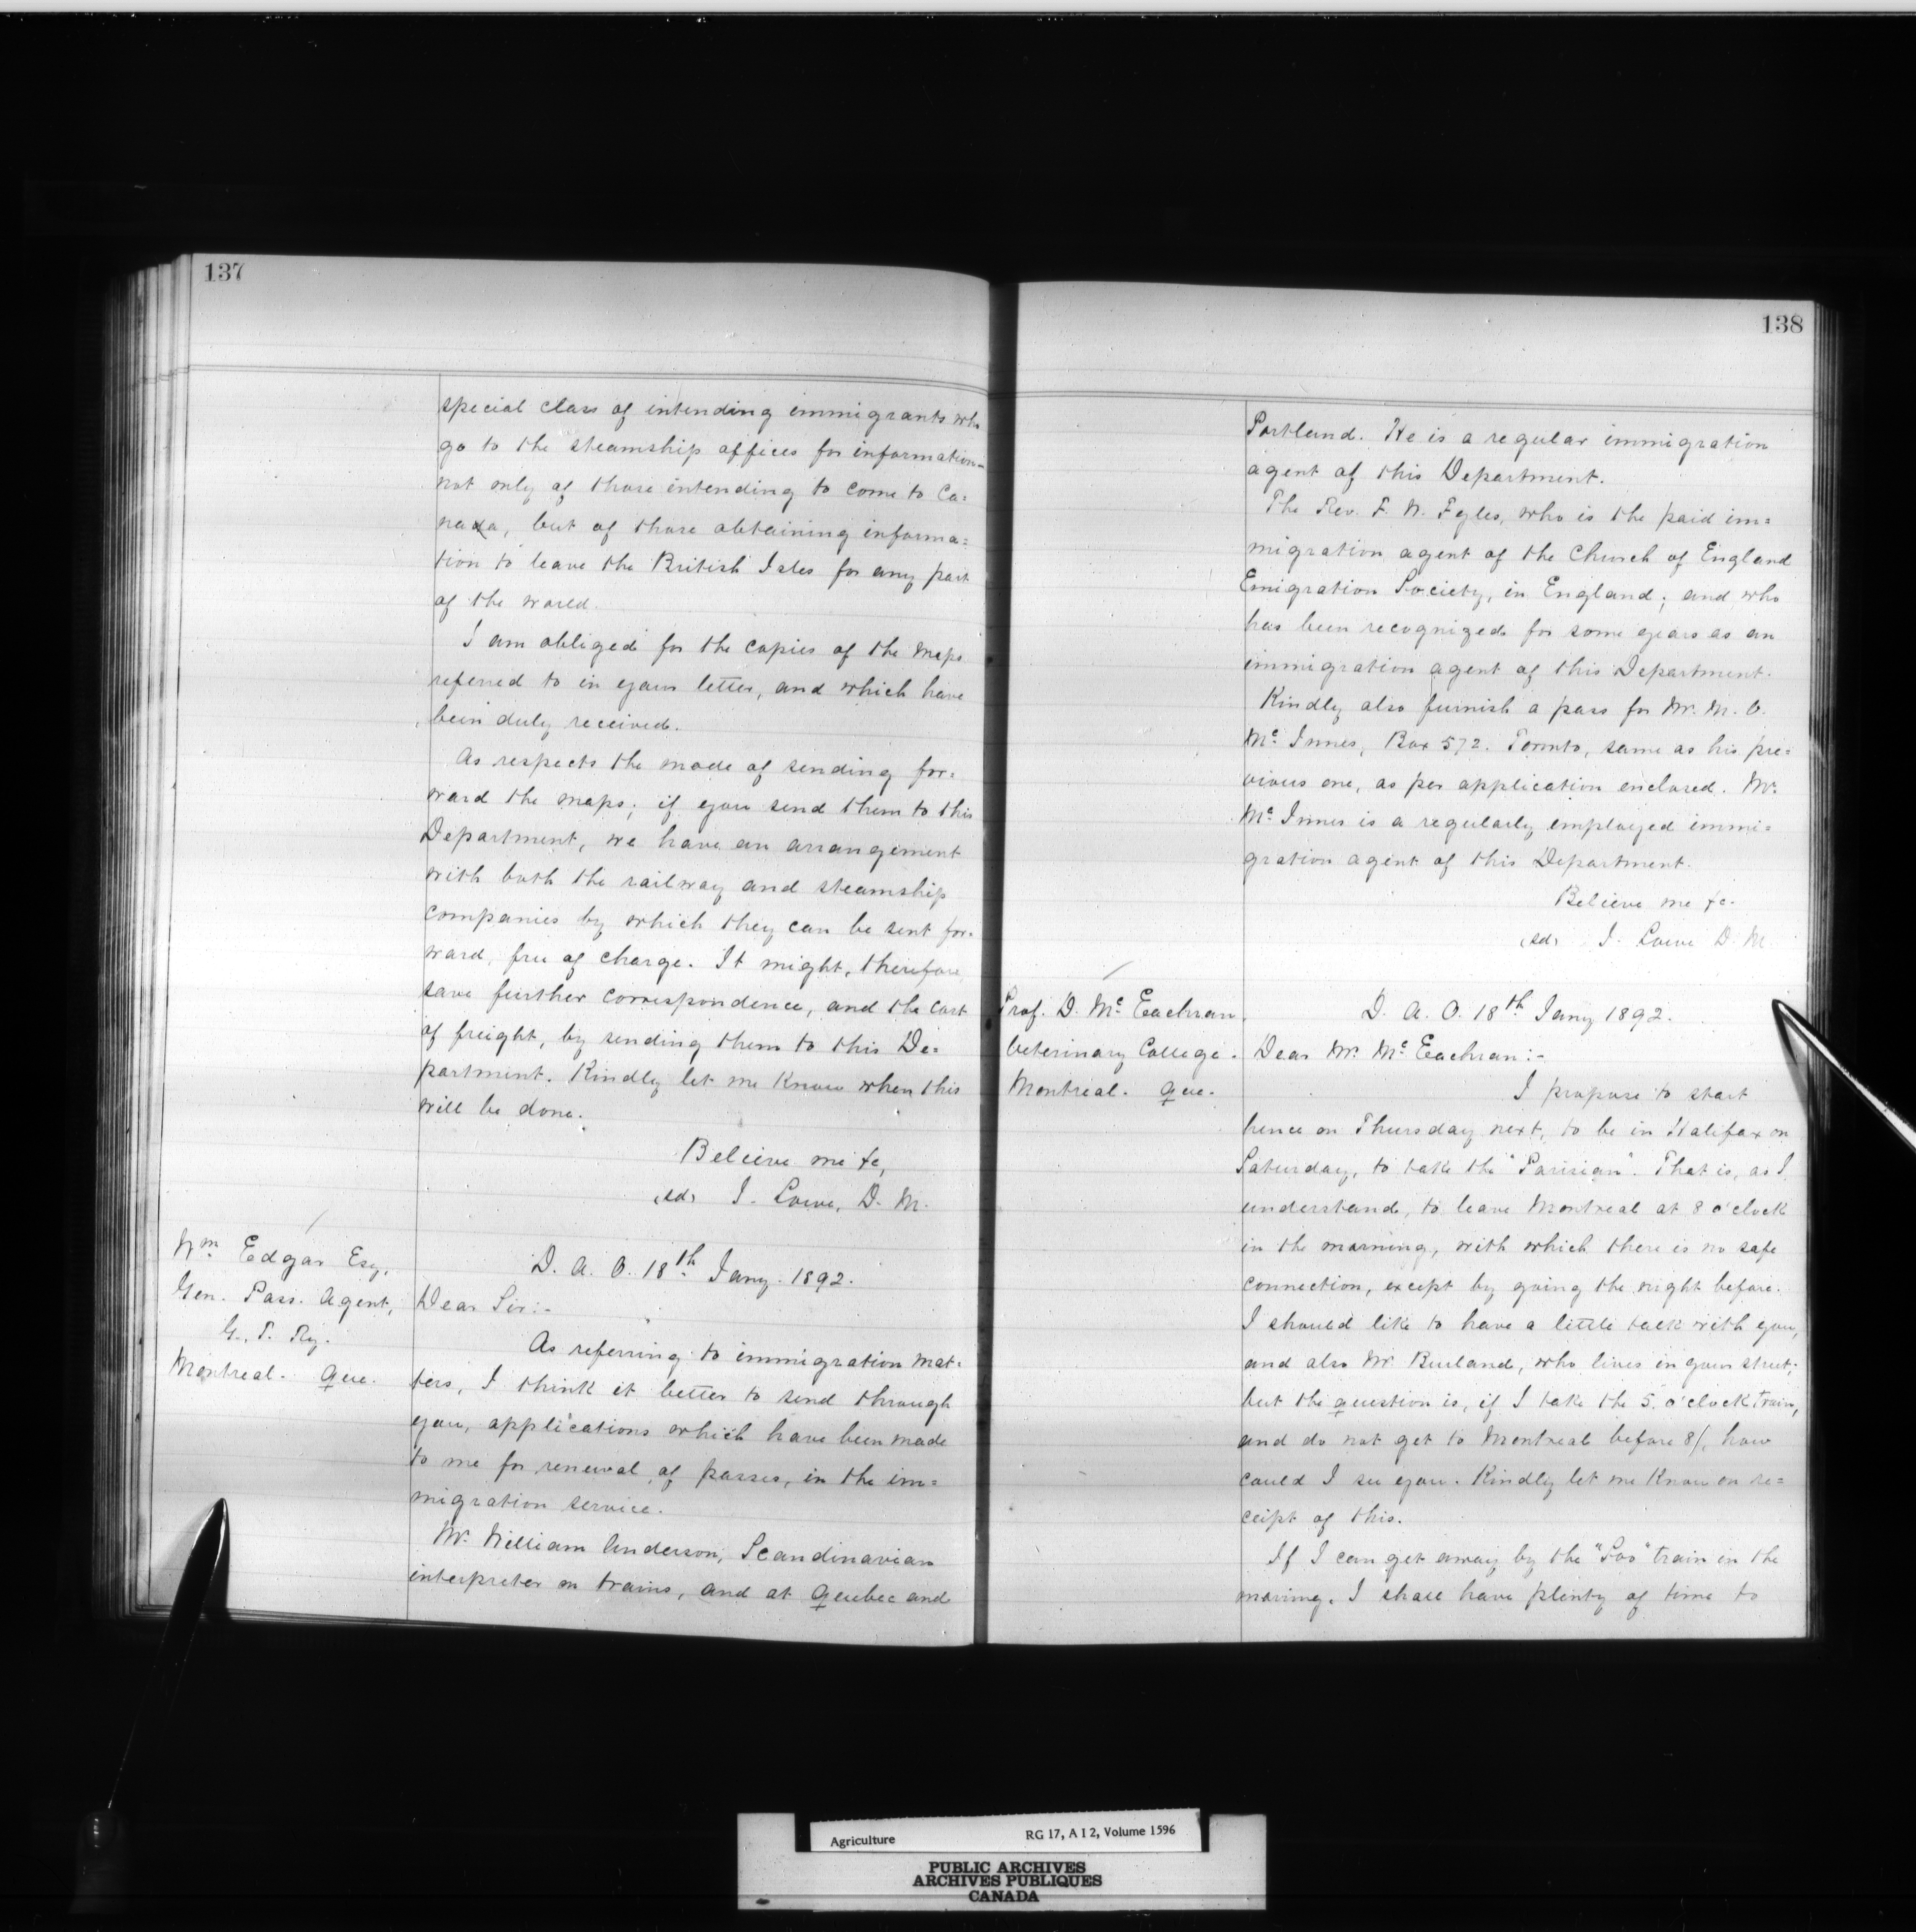 137
special class of intending immigrants who
go to the steamship offices for information -
not only of those intending to come to Ca=
nada, but of those obtaining informa=
tion to leave the British Isles for any part
of the world.
I am obliged for the copies of the maps
referred to in your letter, and which have
been duly received.
As respects the mode of sending for=
ward the maps; if you send them to this
Department, we have an arrangement
with both the railway and steamship
companies by which they can be sent for=
ward, free of charge. It might, therefore,
save further correspondence, and the cost
of freight, by sending them to this De=
partment. Kindly let me know when this
will be done.
Believe me &c,
(sd) J. Lowe, D. M.
Wm Edgar Esq,
Gen. Pass. Agent,
G. T. Ry.
Montreal. Que.
D. A. O. 18th Jany. 1892.
Dear Sir:-
As referring to immigration mat=
ters, I think it better to send through
you, applications which have been made
to me for renewal of passes, in the im=
migration service.
Mr. William Anderson, Scandinavian
interpreter on trains, and at Quebec and
138
Portland. He is a regular immigration
agent of this Department.
The Rev. F. W. Fyles, who is the paid im=
migration agent of the Church of England
Emigration Society, in England; and who
has been recognized for some years as an
immigration agent of this Department.
Kindly also furnish a pass for Mr. M. O.
Mc Innes, Box 572. Toronto, same as his pre=
vious one, as per application enclosed. Mr.
Mc Innes is a regularly employed immi=
gration agent of this Department.
Believe me &c.
(sd) J. Lowe D. M
Prof. D. Mc Eachran.
Veterinary College.
Montreal. Que.
D. A. O. 18th Jany 1892.
Dear Mr. Mc Eachran:-
I propose to start
hence on Thursday next, to be in Halifax on
Saturday, to take the "Parisian". That is, as I
understand, to leave Montreal at 8 o'clock
in the morning, with which there is no safe
connection, except by going the night before.
I should like to have a little talk with you,
and also Mr. Burland, who lives in your street;
but the question is, if I take the 5. o'clock train,
and do not get to Montreal before 8/, how
could I see you. Kindly let me know on re=
ceipt of this.
If I can get away by the "Soo" train in the
moring. I shall have plenty of time to
Agriculture
RG 17, A I 2, Volume 1596
PUBLIC ARCHIVES
ARCHIVES PUBLIQUES
CANADA